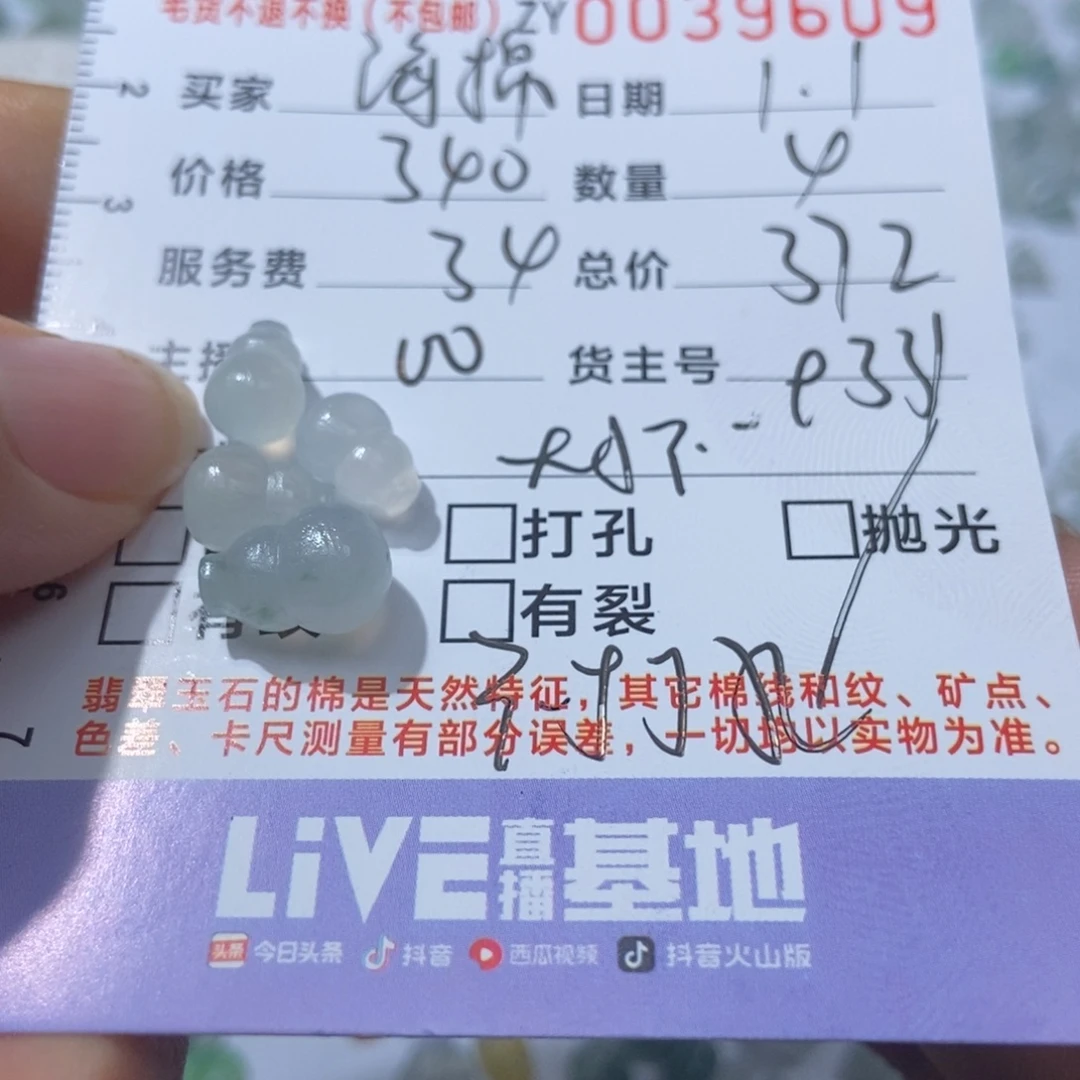 毛货不退不换（不包邮）ZY0039609
2 买家 海棉 日期 1.1
3 价格 340 数量 4
服务费 34 总价 372
主播 货主号
打孔 抛光
6 有裂
翡翠玉石的棉是天然特征，其它棉线和纹、矿点、
7 色差、卡尺测量有部分误差，一切均以实物为准。
LiVE直播基地
头条 今日头条 抖音 西瓜视频 抖音火山版